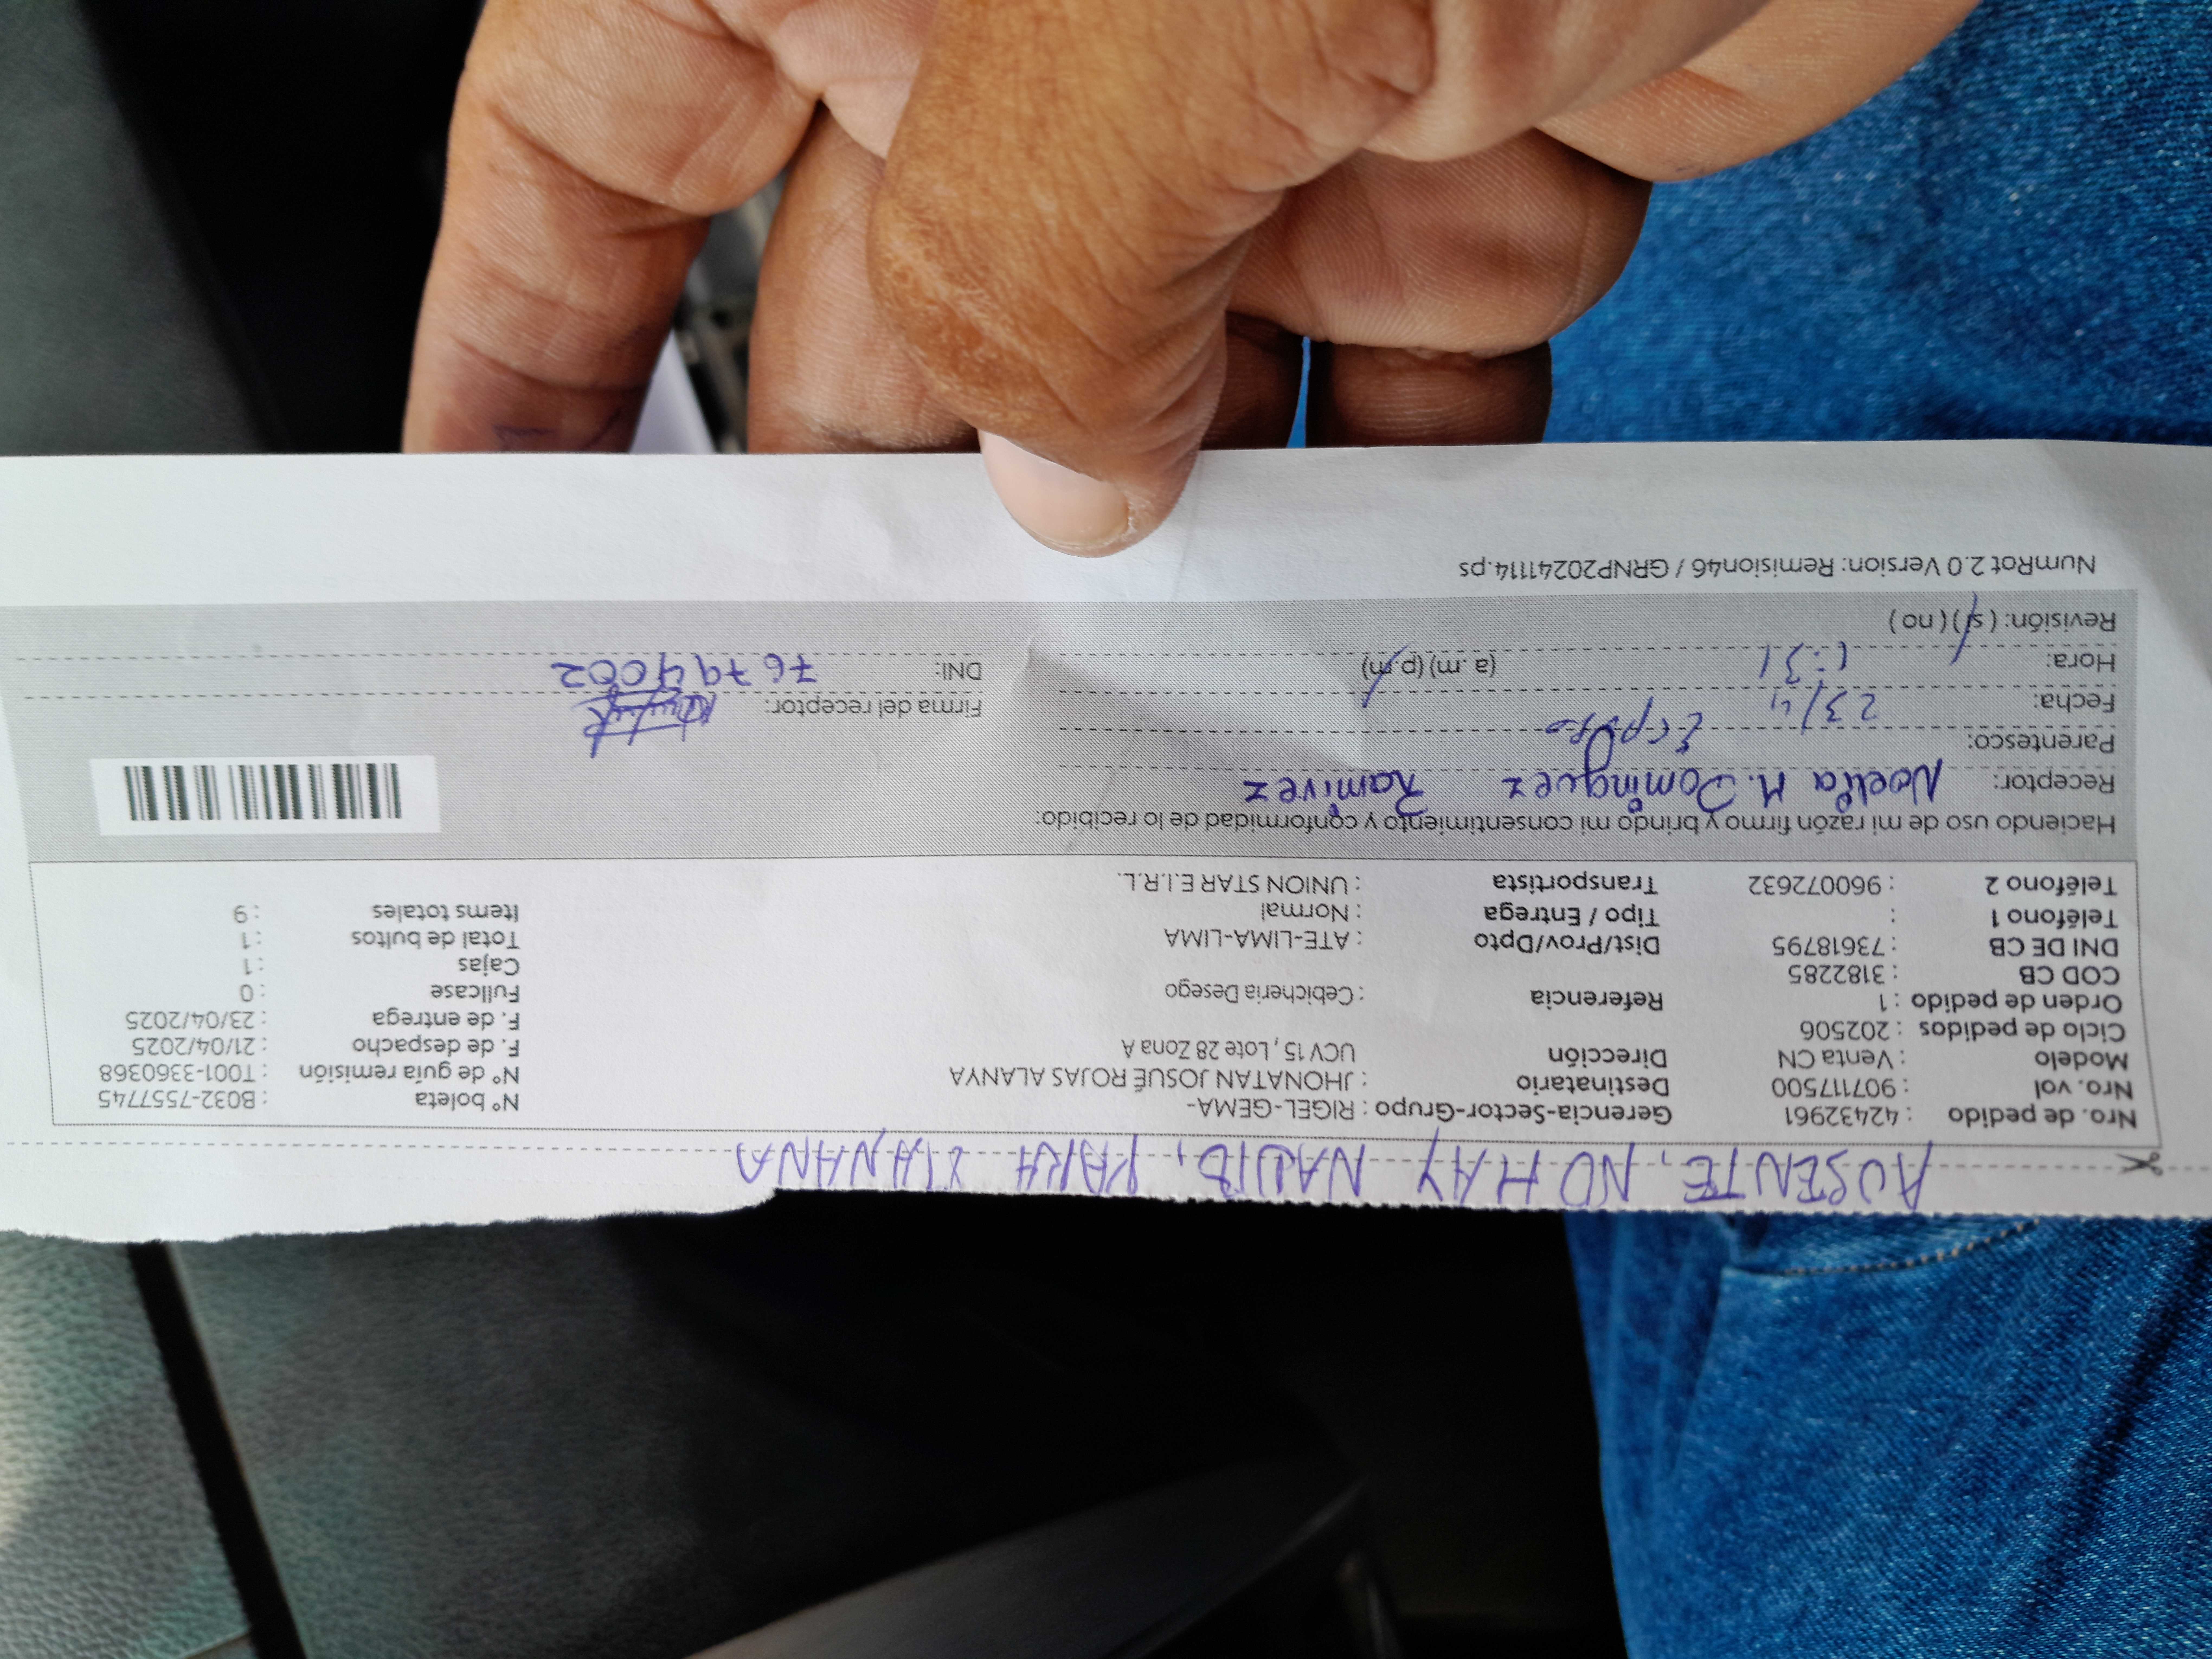 AUSENTE, NO HAY NADIE, PARA MAÑANA
Nro. de pedido : 42432961 Gerencia-Sector-Grupo : RIGEL-GEMA- N° boleta : B032-7557745
Nro. vol : 907117500 Destinatario : JHONATAN JOSUÉ ROJAS ALANYA N° de guía remisión : T001-3360368
Modelo : Venta CN Dirección UCV 15, Lote 28 Zona A F. de despacho : 21/04/2025
Ciclo de pedidos : 202506 F. de entrega : 23/04/2025
Orden de pedido : 1 Referencia : Cebicheria Desego Fullcase : 0
COD CB : 3182285 Cajas : 1
DNI DE CB : 73618795 Dist/Prov/Dpto : ATE-LIMA-LIMA Total de bultos : 1
Teléfono 1 : Tipo / Entrega : Normal Items totales : 9
Teléfono 2 : 960072632 Transportista : UNION STAR E.I.R.L.
Haciendo uso de mi razón firmo y brindo mi consentimiento y conformidad de lo recibido:
Receptor: Noelia M. Dominguez Ramirez
Parentesco:
Fecha: 23/4 Firma del receptor:
Hora: 1:31 (a.m) (p.m) DNI: 76794002
Revisión: (si) (no)
NumRot 2.0 Version: Remision46 / GRNP20241114.ps